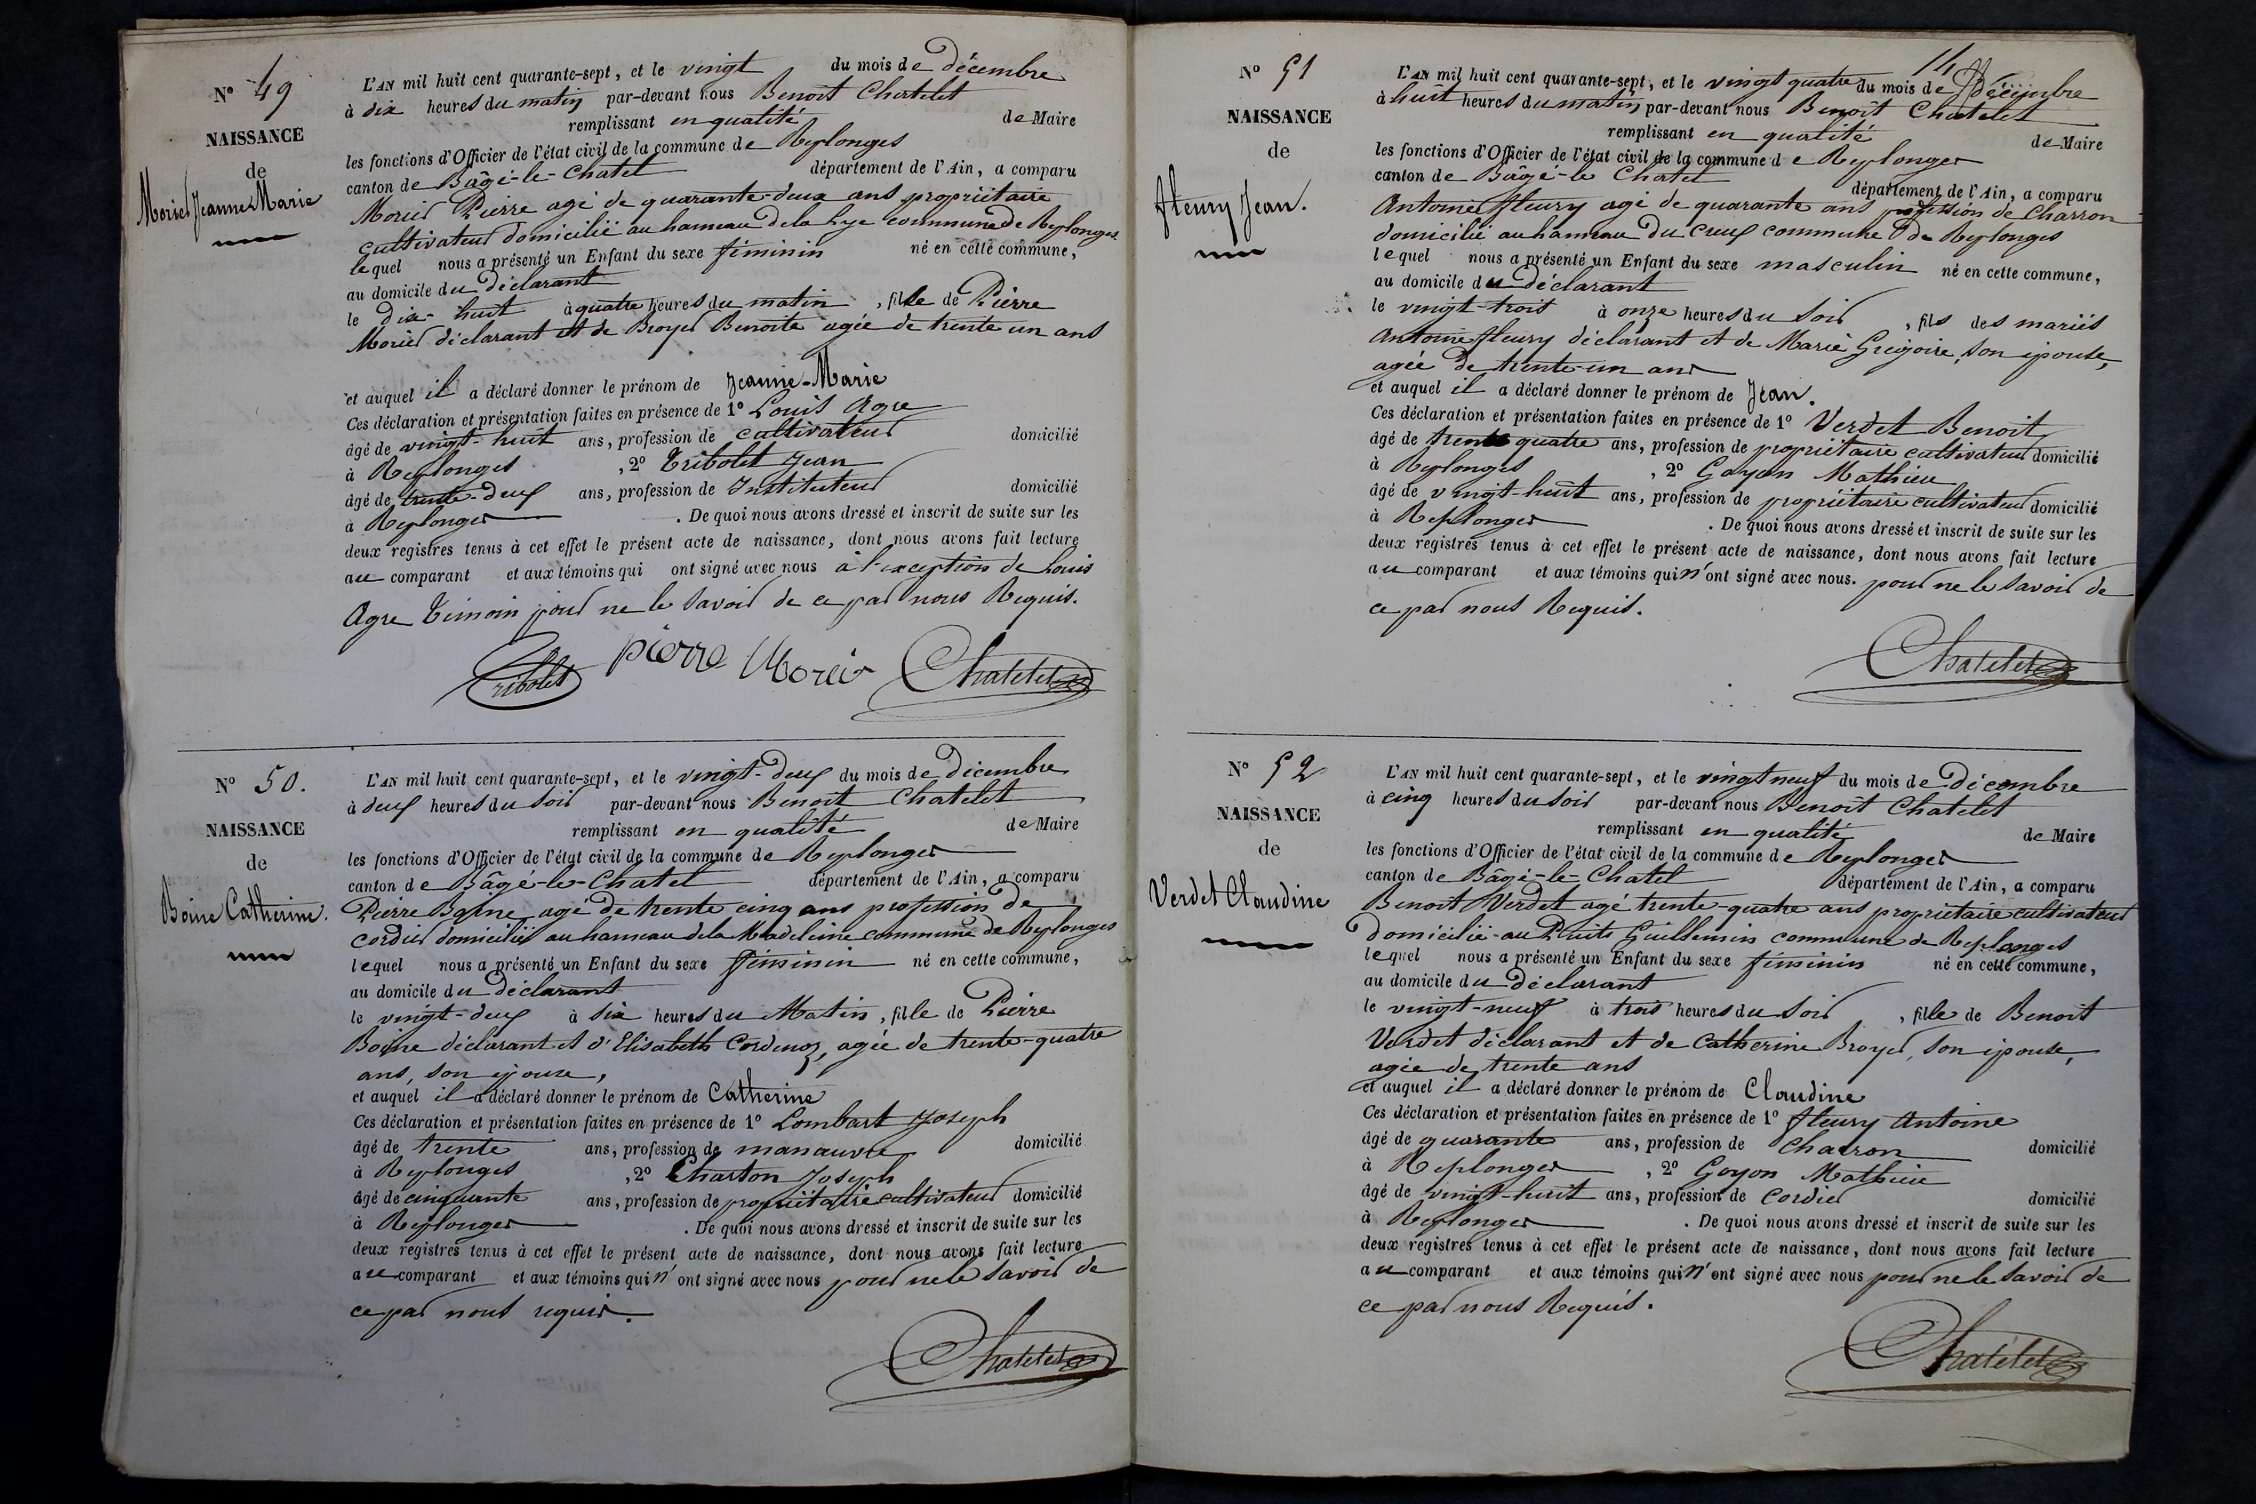 N° 49
NAISSANCE
de
Morier Jeanne Marie
L'AN mil huit cent quarante-sept, et le vingt du mois de Décembre
à dix heures du matin par-devant nous Benoit Chatelet
remplissant en qualité de Maire
les fonctions d'Officier de l'état civil de la commune de Replonges
canton de Bâgé-le-Chatel département de l'Ain, a comparu
Morier Pierre agé de quarante-deux ans propriétaire
cultivateur domicilié au hameau de la commune de Replonges
lequel nous a présenté un Enfant du sexe féminin né en cette commune,
au domicile du Déclarant
le dix-huit à quatre heures du matin, fille de Pierre
Morier déclarant et de Broyer Benoite agée de trente un ans
et auquel il a déclaré donner le prénom de Jeanne-Marie
Ces déclaration et présentation faites en présence de 1° Louis Agre
âgé de vingt-huit ans, profession de cultivateur domicilié
à Replonges, 2° Tribolet Jean
âgé de trente-deux ans, profession de Instituteur domicilié
à Replonges. De quoi nous avons dressé et inscrit de suite sur les
deux registres tenus à cet effet le présent acte de naissance, dont nous avons fait lecture
au comparant et aux témoins qui ont signé avec nous à l'exception de Louis
Agre témoin pour ne le savoir de ce par nous Requis.
Tribolet Pierre Morier Chatelet
N° 50.
NAISSANCE
de
Boine Catherine.
L'AN mil huit cent quarante-sept, et le vingt-deux du mois de Décembre
à deux heures du soir par-devant nous Benoit Chatelet
remplissant en qualité de Maire
les fonctions d'Officier de l'état civil de la commune de Replonges
canton de Bâgé-le-Chatel département de l'Ain, a comparu
Pierre Boine agé de trente cinq ans profession de
cordier domicilié au hameau de la Madeleine commune de Replonges
lequel nous a présenté un Enfant du sexe féminin né en cette commune,
au domicile du Déclarant
le vingt-deux à six heures du Matin, fille de Pierre
Boine déclarant et d'Elisabeth Cordenoz, agée de trente-quatre
ans, son épouse,
et auquel il a déclaré donner le prénom de Catherine
Ces déclaration et présentation faites en présence de 1° Lombart Joseph
âgé de trente ans, profession de manœuvre domicilié
à Replonges, 2° Charton Joseph
âgé de cinquante ans, profession de propriétaire cultivateur domicilié
à Replonges. De quoi nous avons dressé et inscrit de suite sur les
deux registres tenus à cet effet le présent acte de naissance, dont nous avons fait lecture
au comparant et aux témoins qui n'ont signé avec nous pour ne le savoir de
ce par nous requis.
Chatelet
14
N° 51
NAISSANCE
de
fleury Jean.
L'AN mil huit cent quarante-sept, et le vingt quatre du mois de Décembre
à huit heures du matin par-devant nous Benoit Chatelet
remplissant en qualité de Maire
les fonctions d'Officier de l'état civil de la commune de Replonges
canton de Bâgé-le Chatel département de l'Ain, a comparu
Antoine fleury agé de quarante ans profession de Charron
domicilié au hameau du creux commune de Replonges
lequel nous a présenté un Enfant du sexe masculin né en cette commune,
au domicile du déclarant
le vingt-trois à onze heures du soir, fils des mariés
Antoine fleury déclarant et de Marie Grégoire, son épouse,
agée de trente-un ans
et auquel il a déclaré donner le prénom de Jean.
Ces déclaration et présentation faites en présence de 1° Verdet Benoit
âgé de trente quatre ans, profession de propriétaire cultivateur domicilié
à Replonges, 2° Goyon Mathieu
âgé de vingt-huit ans, profession de propriétaire cultivateur domicilié
à Replonges. De quoi nous avons dressé et inscrit de suite sur les
deux registres tenus à cet effet le présent acte de naissance, dont nous avons fait lecture
au comparant et aux témoins qui n'ont signé avec nous. pour ne le savoir de
ce par nous Requis.
Chatelet
N° 52
NAISSANCE
de
Verdet Claudine
L'AN mil huit cent quarante-sept, et le vingt neuf du mois de Décembre
à cinq heures du soir par-devant nous Benoit Chatelet
remplissant en qualité de Maire
les fonctions d'Officier de l'état civil de la commune de Replonges
canton de Bâgé-le-Chatel département de l'Ain, a comparu
Benoit Verdet agé trente-quatre ans propriétaire cultivateur
domicilié au Puits Guillemin commune de Replonges
lequel nous a présenté un Enfant du sexe féminin né en cette commune,
au domicile du Déclarant
le vingt-neuf à trois heures du soir, fille de Benoit
Verdet déclarant et de Catherine Broyer, son épouse,
agée de trente ans
et auquel il a déclaré donner le prénom de Claudine
Ces déclaration et présentation faites en présence de 1° fleury Antoine
âgé de quarante ans, profession de Charron domicilié
à Replonges, 2° Goyon Mathieu
âgé de vingt-huit ans, profession de cordier domicilié
à Replonges. De quoi nous avons dressé et inscrit de suite sur les
deux registres tenus à cet effet le présent acte de naissance, dont nous avons fait lecture
au comparant et aux témoins qui n'ont signé avec nous pour ne le savoir de
ce par nous Requis.
Chatelet